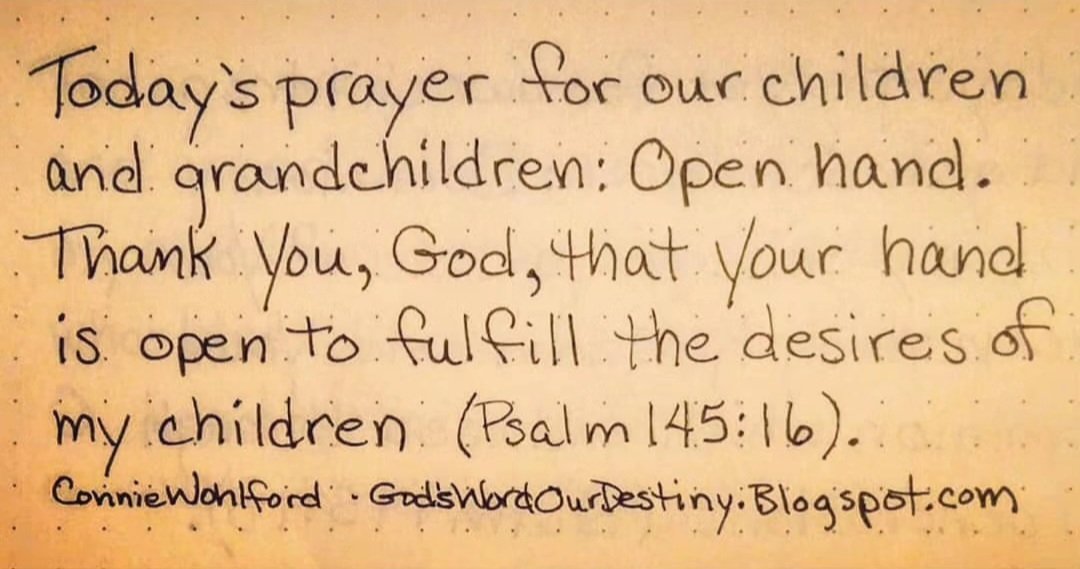 Today's prayer for our children
and grandchildren: Open hand.
Thank You, God, that Your hand
is open to fulfill the desires of
my children (Psalm 145:16).
Connie Wohlford · God'sWordOurDestiny.Blogspot.com